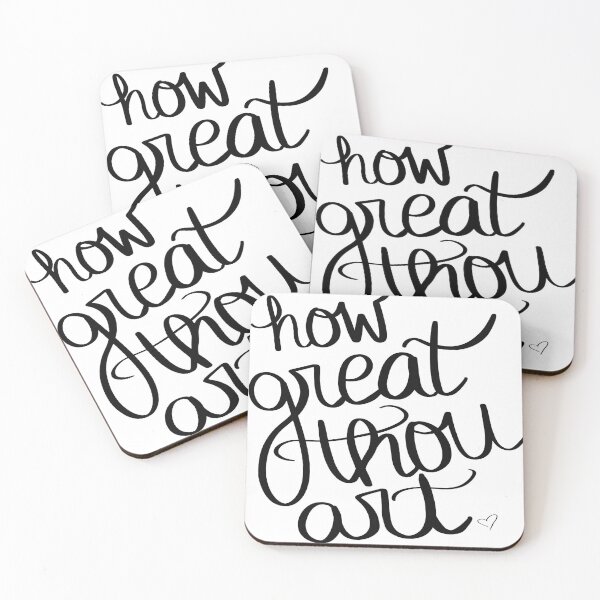 how
great
how
great
thou
how
great
thou
art
how
great
thou
art